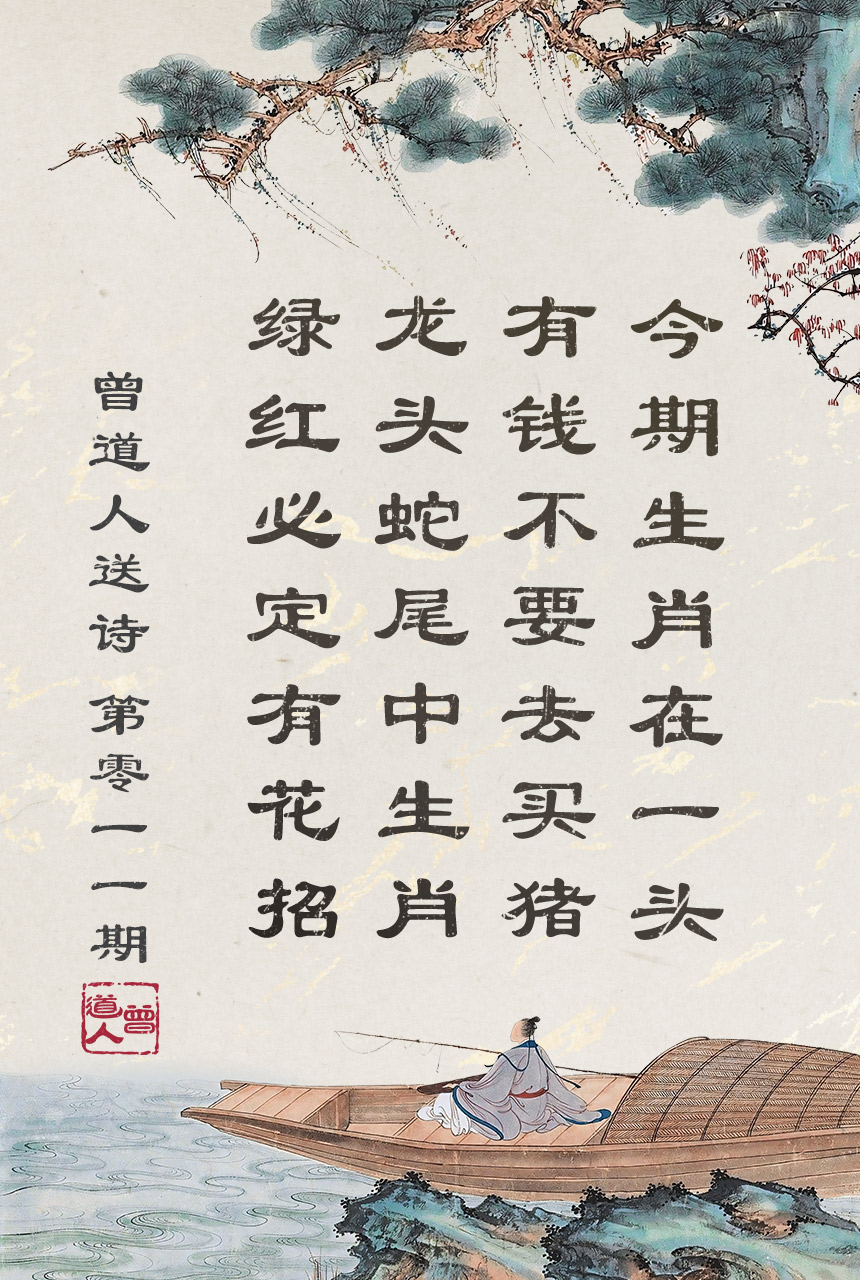 今期生肖在一头
有钱不要去买猪
龙头蛇尾中生肖
绿红必定有花招
曾道人送诗 第零一一期
曾道人